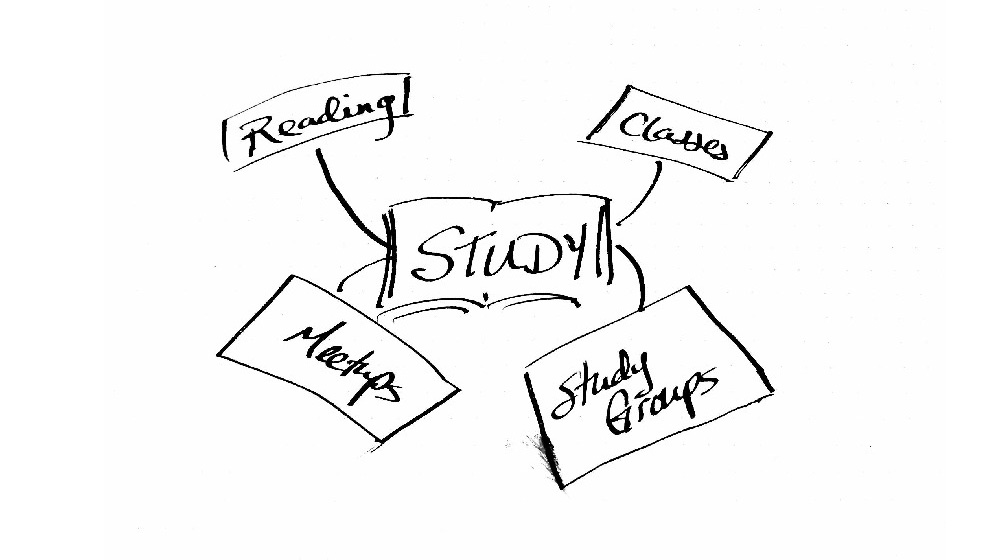 Reading
Classes
STUDY
Meetups
Study
Groups